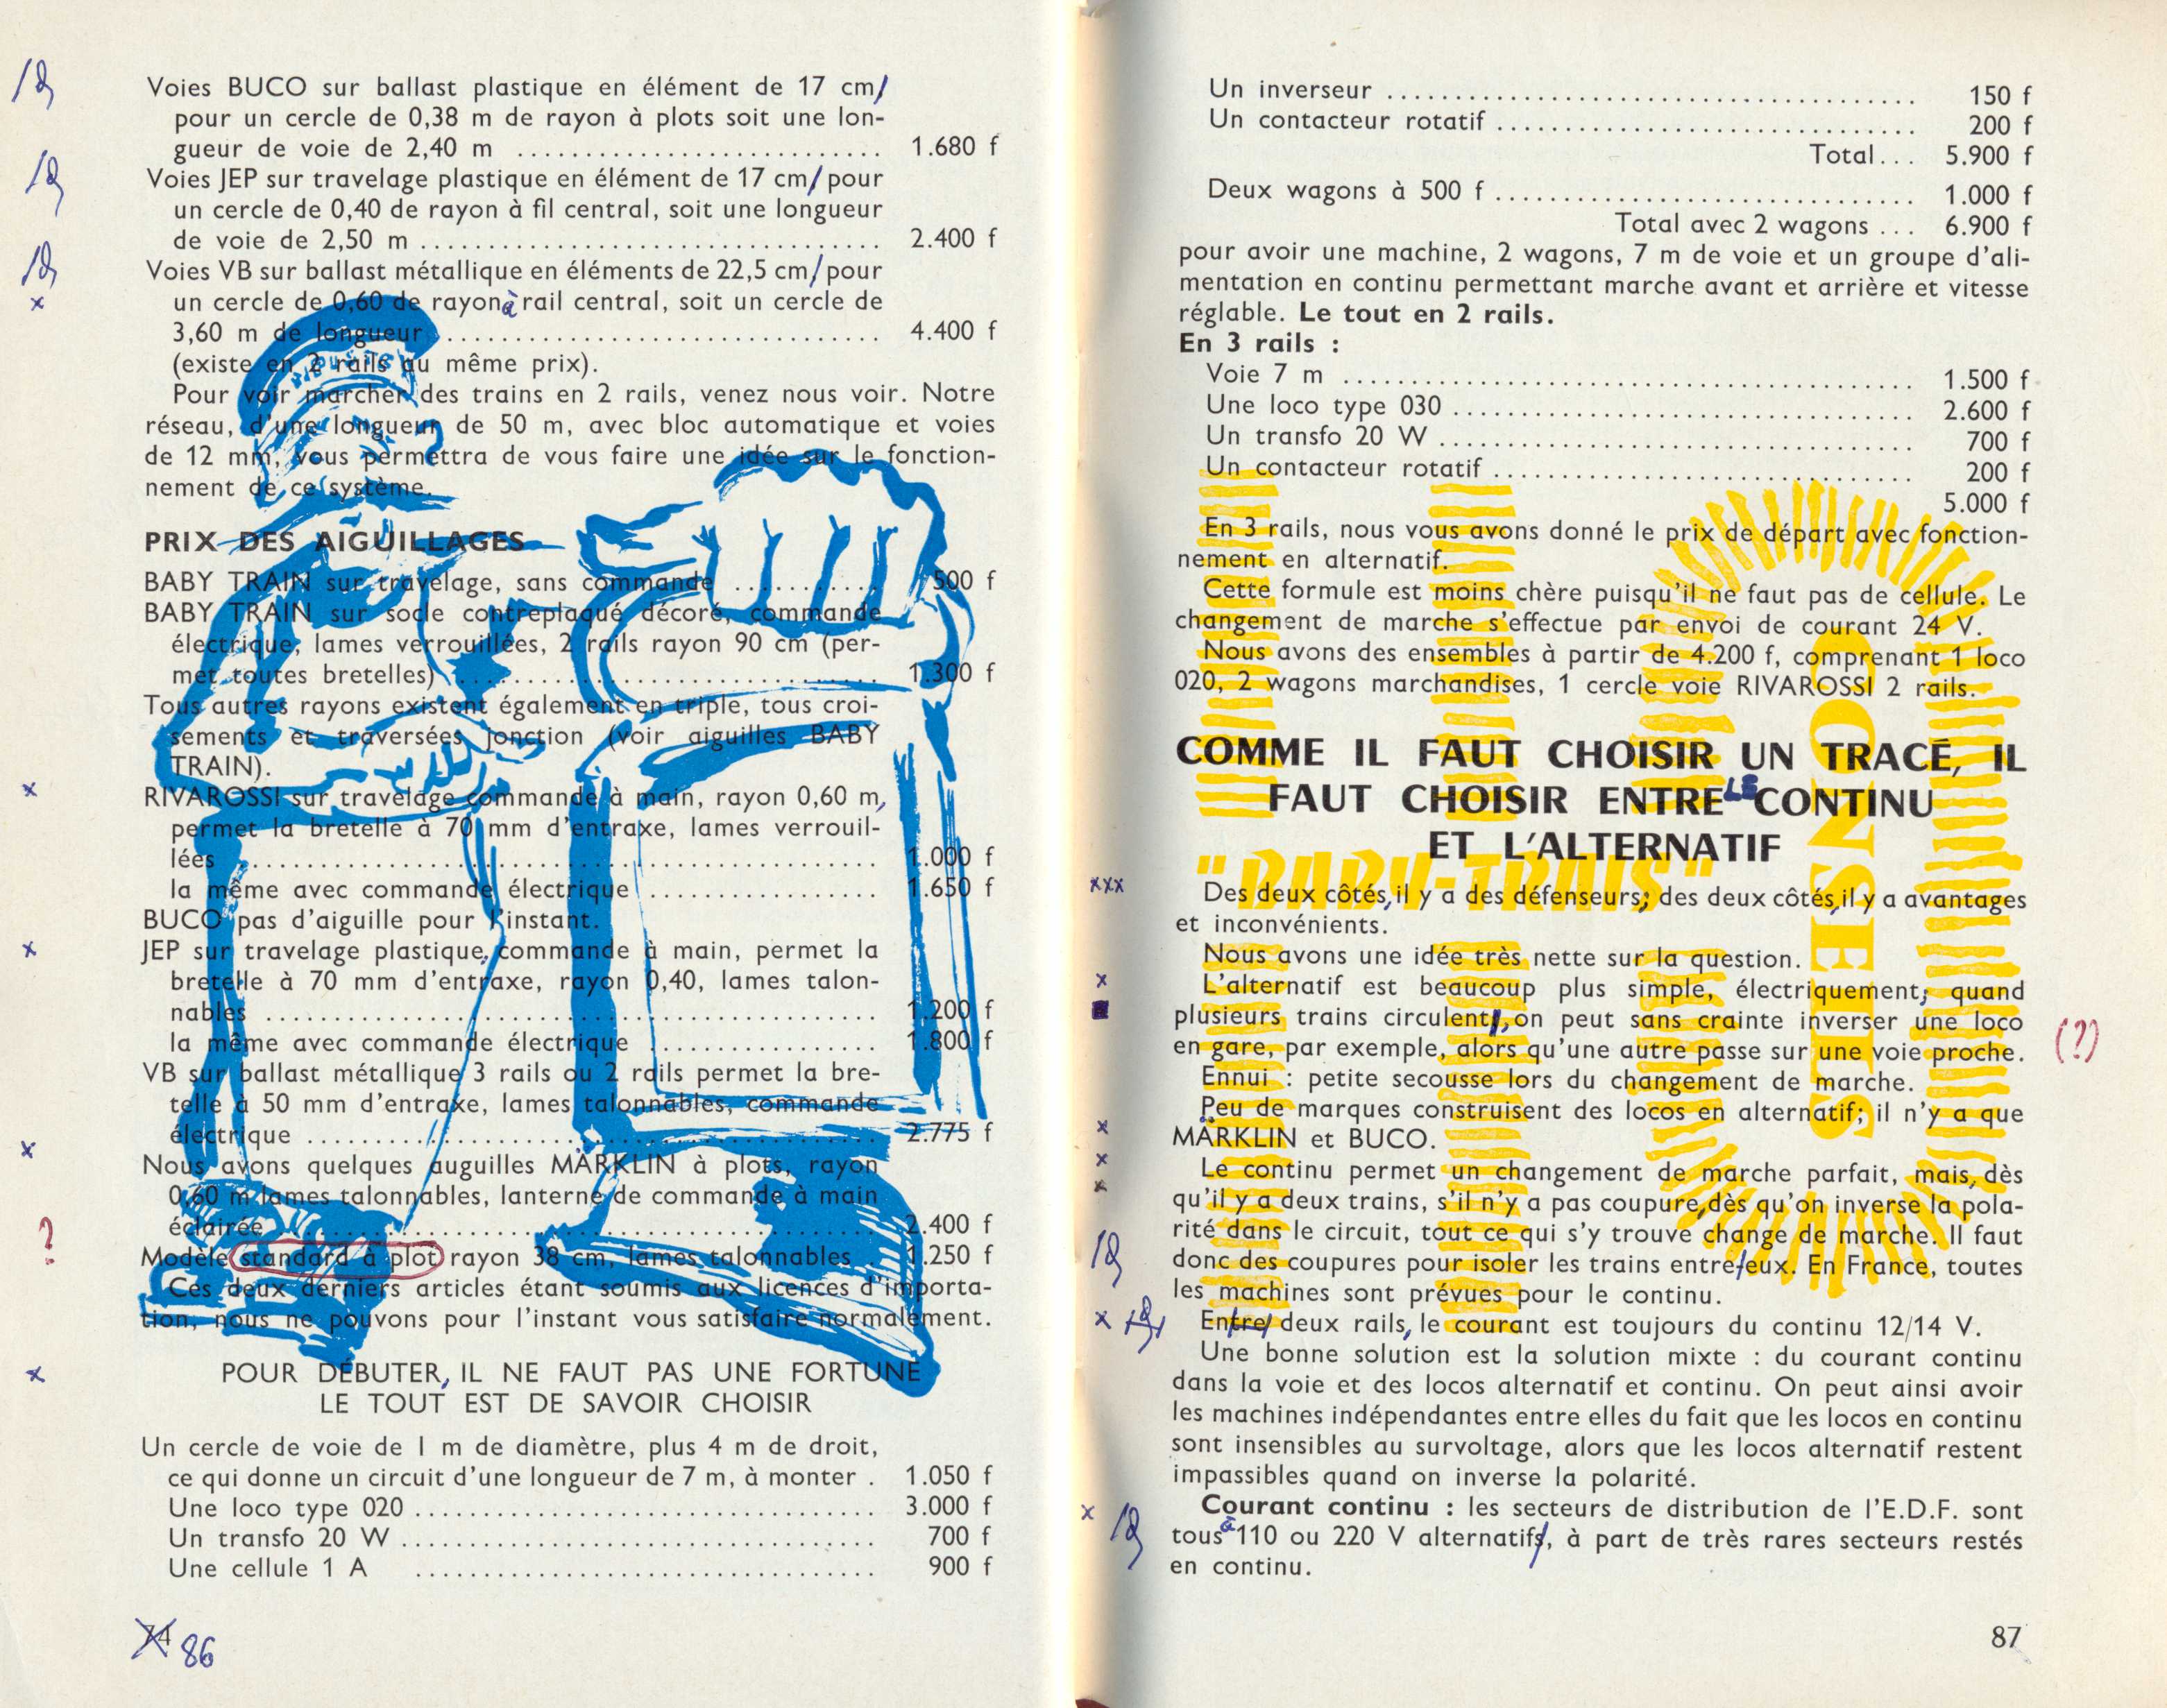 Voies BUCO sur ballast plastique en élément de 17 cm/
pour un cercle de 0,38 m de rayon à plots soit une lon-
gueur de voie de 2,40 m ........................... 1.680 f
Voies JEP sur travelage plastique en élément de 17 cm/ pour
un cercle de 0,40 de rayon à fil central, soit une longueur
de voie de 2,50 m .................................. 2.400 f
Voies VB sur ballast métallique en éléments de 22,5 cm/ pour
x un cercle de 0,60 de rayon à rail central, soit un cercle de
3,60 m de longueur ................................ 4.400 f
(existe en 2 rails au même prix).
Pour voir marcher des trains en 2 rails, venez nous voir. Notre
réseau, d'une longueur de 50 m, avec bloc automatique et voies
de 12 mm, vous permettra de vous faire une idée sur le fonction-
nement de ce système.
PRIX DES AIGUILLAGES
BABY TRAIN sur travelage, sans commande ........... 500 f
BABY TRAIN sur socle contreplaqué décoré, commande
électrique, lames verrouillées, 2 rails rayon 90 cm (per-
met toutes bretelles) ............................... 1.300 f
Tous autres rayons existent également en triple, tous croi-
sements et traversées jonction (voir aiguilles BABY
TRAIN).
x RIVAROSSI sur travelage commande à main, rayon 0,60 m,
permet la bretelle à 70 mm d'entraxe, lames verrouil-
lées ............................................... 1.000 f
la même avec commande électrique ................. 1.650 f
BUCO pas d'aiguille pour l'instant.
x JEP sur travelage plastique, commande à main, permet la
bretelle à 70 mm d'entraxe, rayon 0,40, lames talon-
nables ............................................. 1.200 f
la même avec commande électrique ................. 1.800 f
VB sur ballast métallique 3 rails ou 2 rails permet la bre-
telle à 50 mm d'entraxe, lames talonnables, commande
électrique .......................................... 2.775 f
x Nous avons quelques auguilles MÄRKLIN à plots, rayon
0,60 m lames talonnables, lanterne de commande à main
éclairée ............................................ 2.400 f
? Modèle standard à plot rayon 38 cm, lames talonnables . 1.250 f
Ces deux derniers articles étant soumis aux licences d'importa-
tion, nous ne pouvons pour l'instant vous satisfaire normalement.
x POUR DÉBUTER, IL NE FAUT PAS UNE FORTUNE
LE TOUT EST DE SAVOIR CHOISIR
Un cercle de voie de 1 m de diamètre, plus 4 m de droit,
ce qui donne un circuit d'une longueur de 7 m, à monter . 1.050 f
Une loco type 020 .................................. 3.000 f
Un transfo 20 W ................................... 700 f
Une cellule 1 A .................................. 900 f
74 86
Un inverseur ....................................... 150 f
Un contacteur rotatif ............................... 200 f
Total... 5.900 f
Deux wagons à 500 f ............................... 1.000 f
Total avec 2 wagons ... 6.900 f
pour avoir une machine, 2 wagons, 7 m de voie et un groupe d'ali-
mentation en continu permettant marche avant et arrière et vitesse
réglable. Le tout en 2 rails.
En 3 rails :
Voie 7 m .......................................... 1.500 f
Une loco type 030 .................................. 2.600 f
Un transfo 20 W ................................... 700 f
Un contacteur rotatif ............................... 200 f
5.000 f
En 3 rails, nous vous avons donné le prix de départ avec fonction-
nement en alternatif.
Cette formule est moins chère puisqu'il ne faut pas de cellule. Le
changement de marche s'effectue par envoi de courant 24 V.
Nous avons des ensembles à partir de 4.200 f, comprenant 1 loco
020, 2 wagons marchandises, 1 cercle voie RIVAROSSI 2 rails.
COMME IL FAUT CHOISIR UN TRACÉ, IL
FAUT CHOISIR ENTRE LE CONTINU
ET L'ALTERNATIF
"BABY-TRAIN"
CONSEILS
xxx Des deux côtés, il y a des défenseurs; des deux côtés, il y a avantages
et inconvénients.
Nous avons une idée très nette sur la question.
x L'alternatif est beaucoup plus simple, électriquement; quand
plusieurs trains circulent, on peut sans crainte inverser une loco
en gare, par exemple, alors qu'une autre passe sur une voie proche. (?)
Ennui : petite secousse lors du changement de marche.
x Peu de marques construisent des locos en alternatif; il n'y a que
MÄRKLIN et BUCO.
x Le continu permet un changement de marche parfait, mais, dès
x qu'il y a deux trains, s'il n'y a pas coupure, dès qu'on inverse la pola-
rité dans le circuit, tout ce qui s'y trouve change de marche. Il faut
donc des coupures pour isoler les trains entre/eux. En France, toutes
les machines sont prévues pour le continu.
x Entre/ deux rails, le courant est toujours du continu 12/14 V.
Une bonne solution est la solution mixte : du courant continu
dans la voie et des locos alternatif et continu. On peut ainsi avoir
les machines indépendantes entre elles du fait que les locos en continu
sont insensibles au survoltage, alors que les locos alternatif restent
impassibles quand on inverse la polarité.
x Courant continu : les secteurs de distribution de l'E.D.F. sont
tous à 110 ou 220 V alternatifs/, à part de très rares secteurs restés
en continu.
87